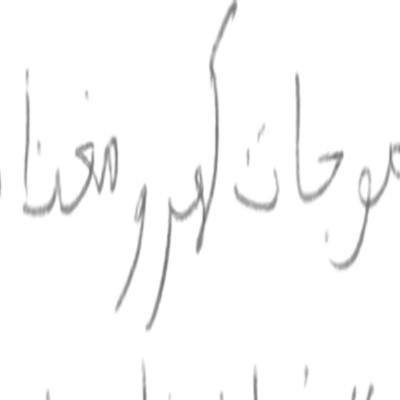 موجات كهرومغنا